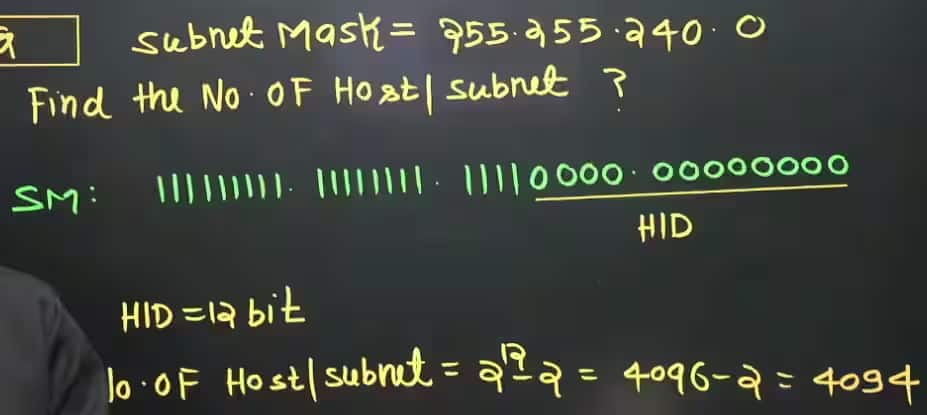 Q
Subnet Mask = 255.255.240.0
Find the No. OF Host/subnet ?
SM: 111111111. 11111111. 11110000. 00000000
HID
HID = 12 bit
No. OF Host/subnet = 2^12-2 = 4096-2 = 4094